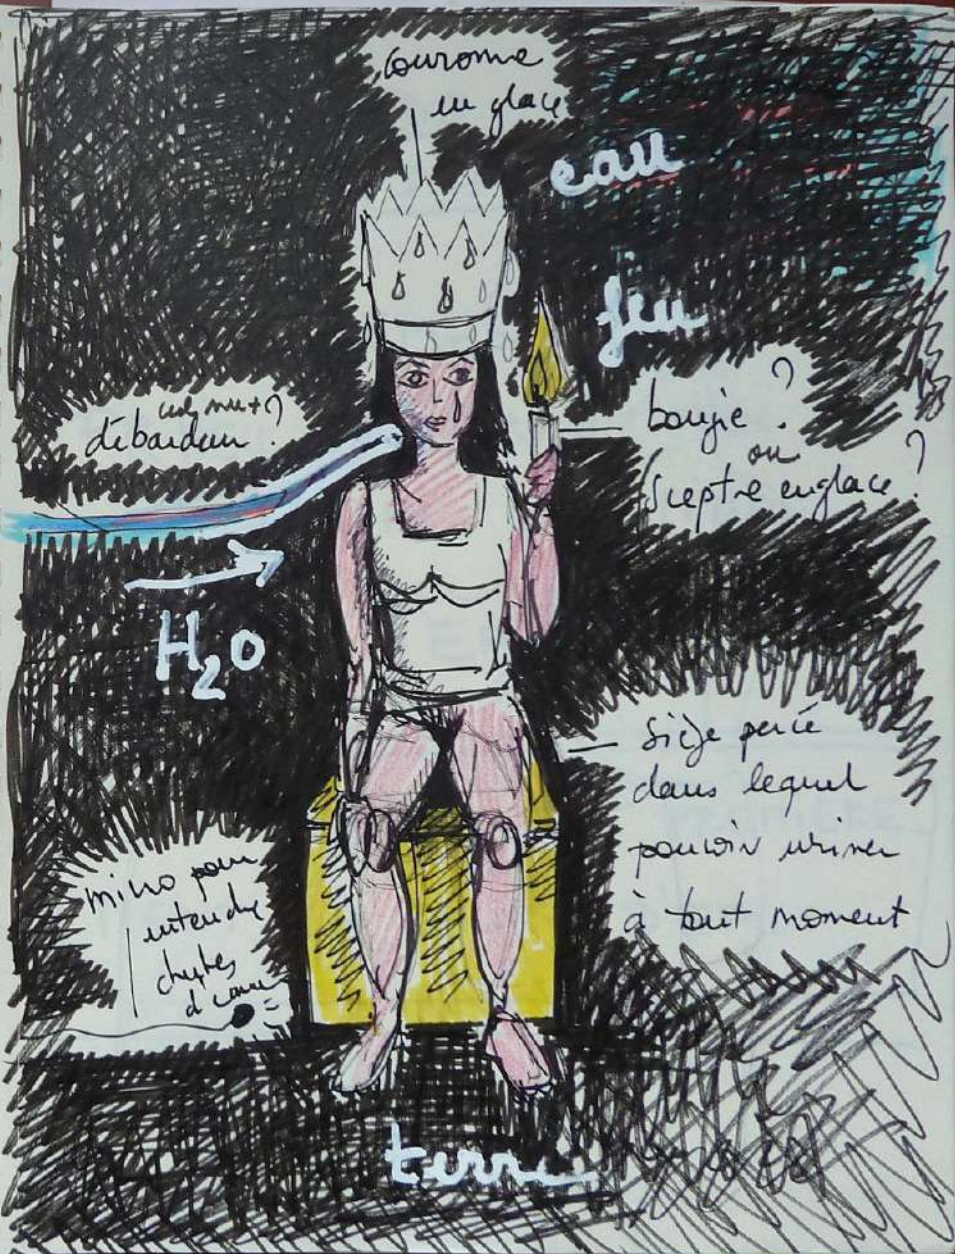 couronne
en glace
eau
feu
débardeur ?
bougie ?
ou
Sceptre en glace ?
H₂O
siège percé
dans lequel
pouvoir uriner
à tout moment
micro pour
entendre
chutes
d'eau
terre